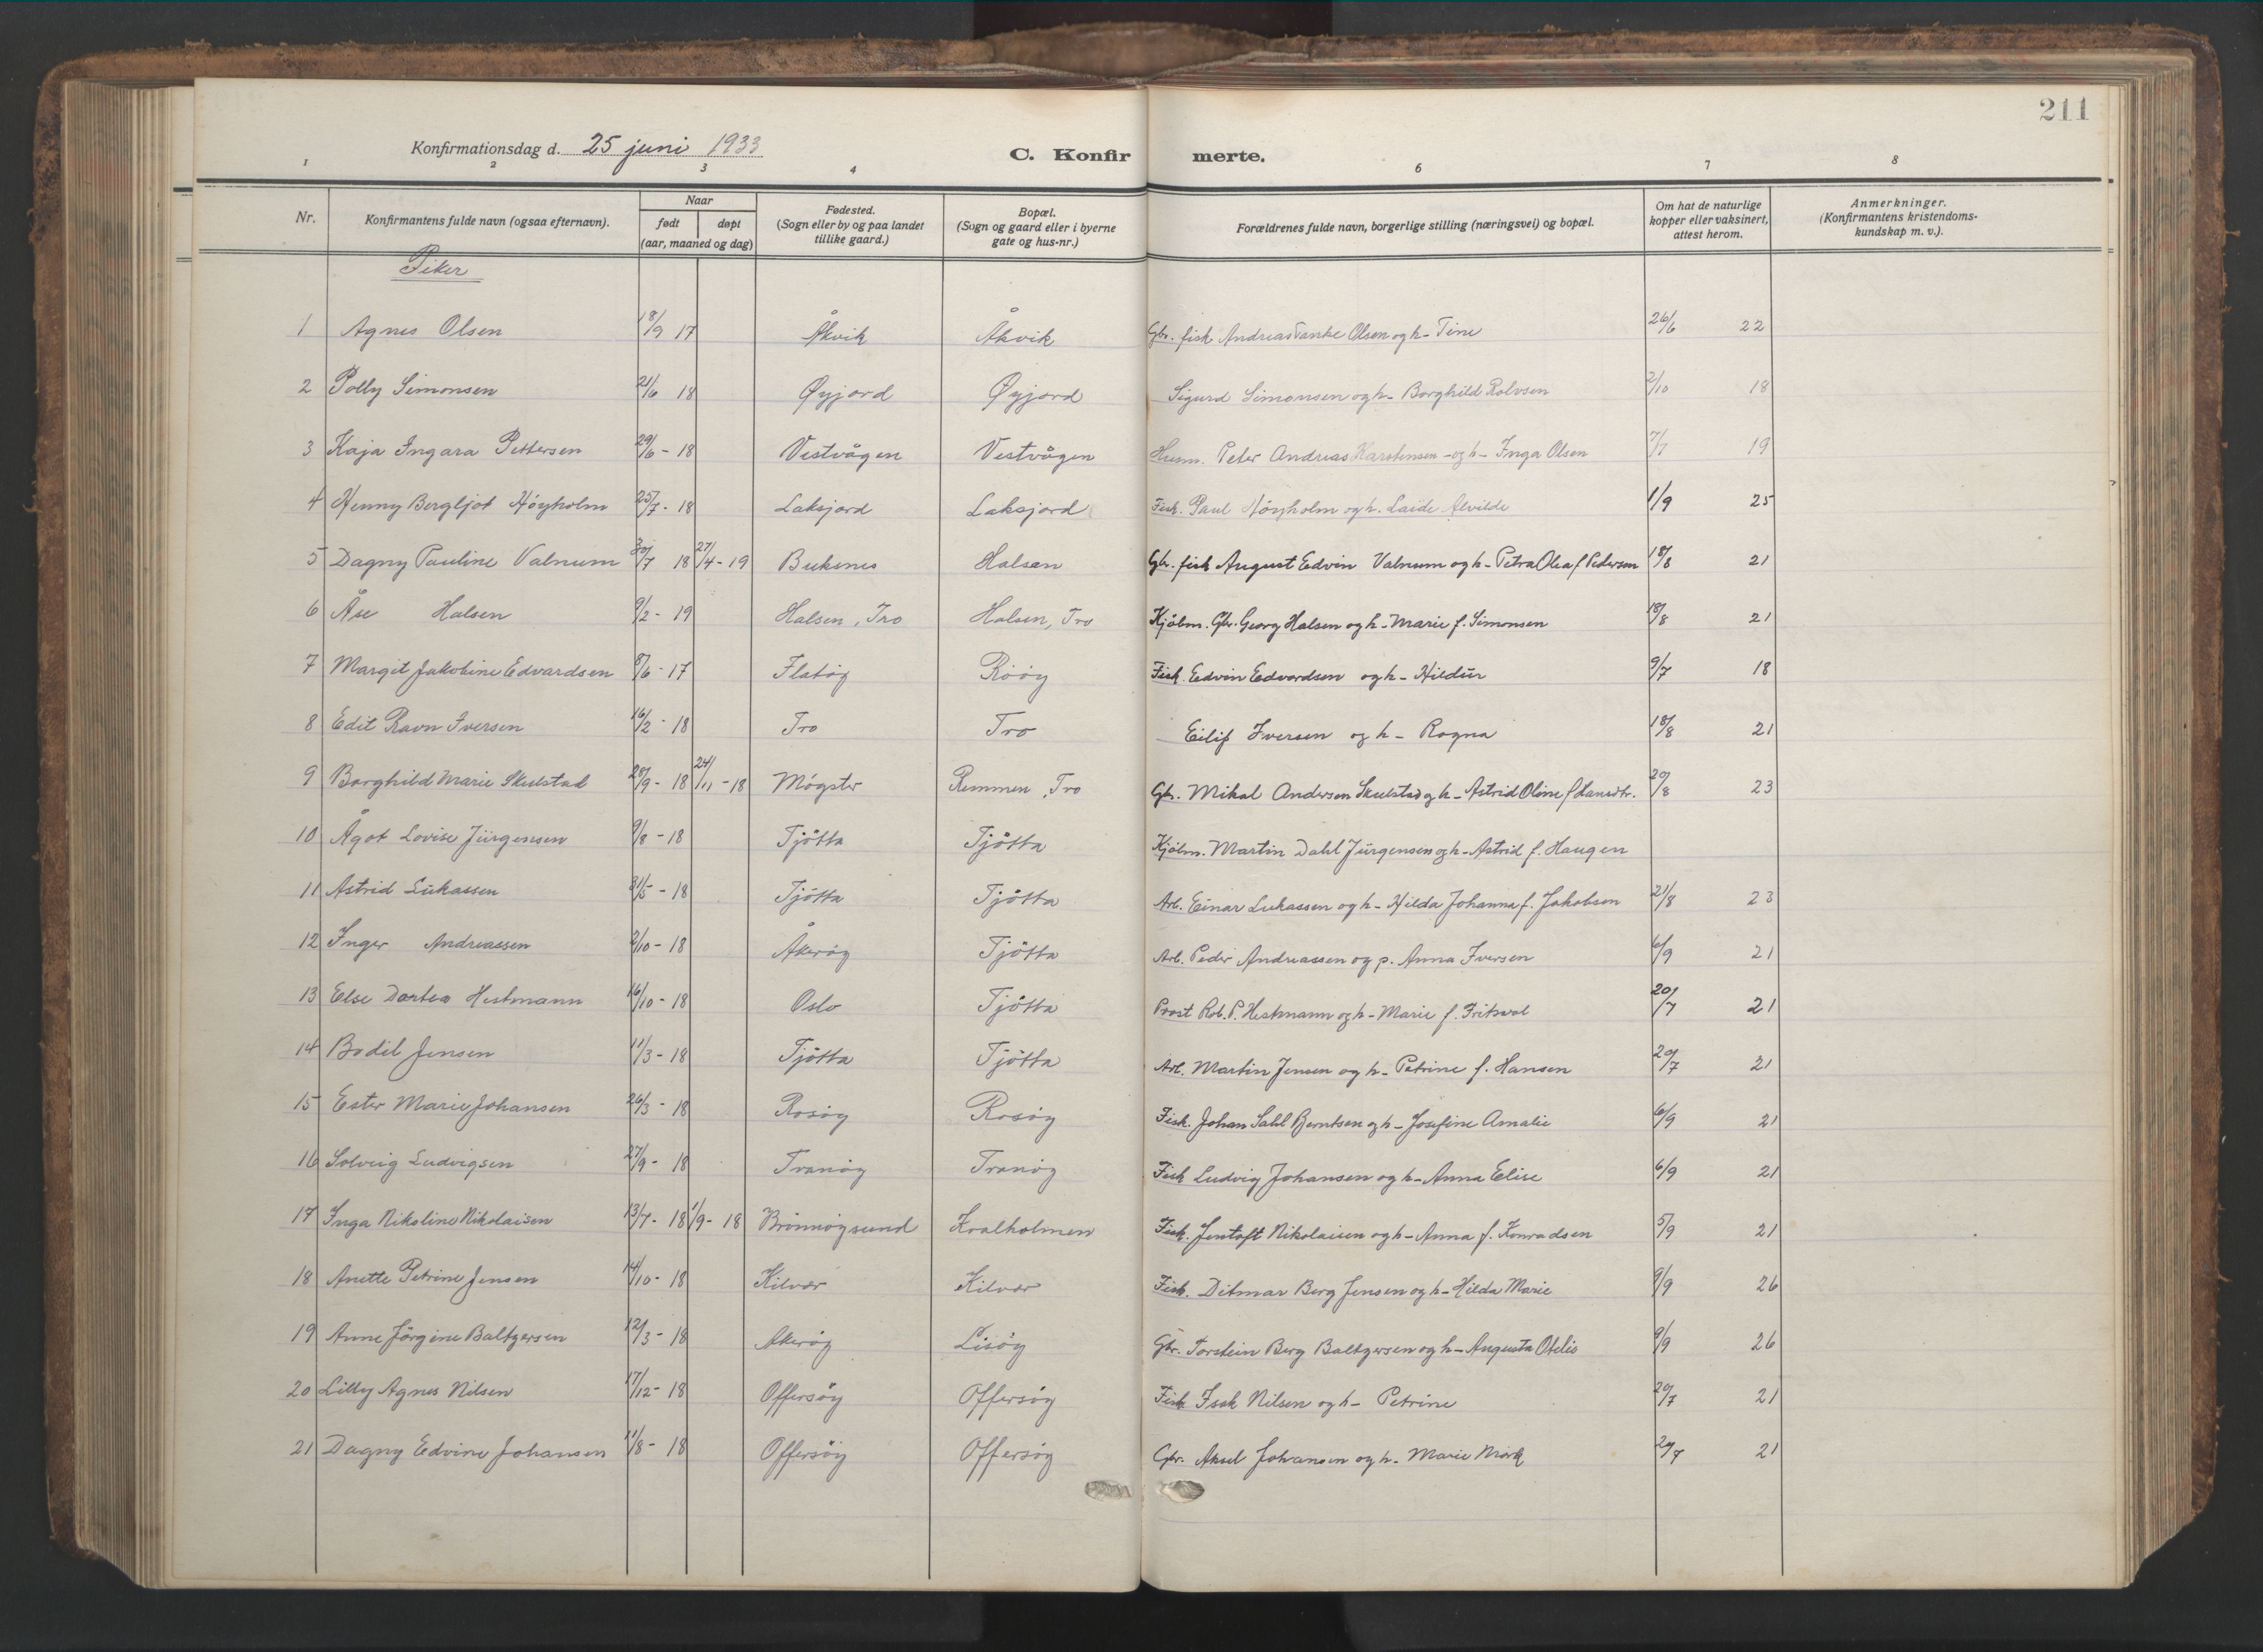 211
Konfirmationsdag d. 25 juni 1933
C. Konfirmerte.
1 2 3 4 6 7 8
Nr. Konfirmantens fulde navn (ogsaa efternavn). Naar født døpt (aar, maaned og dag) Fødested. (Sogn eller by og paa landet tillike gaard.) Bopæl. (Sogn og gaard eller i byerne gate og hus-nr.) Forældrenes fulde navn, borgerlige stilling (næringsvei) og bopæl. Om hat de naturlige kopper eller vaksinert, attest herom. Anmerkninger. (Konfirmantens kristendoms-kundskap m. v.).
Piker
1 Agnes Olsen 18/9 17 Åkvik Åkvik Gbr. fisk Andreas Tanke Olsen og h- Tine 26/6 22
2 Polly Simonsen 21/6 18 Øyjord Øyjord Sigurd Simonsen og h- Borghild Rolvsen 2/10 18
3 Kaja Ingara Pettersen 29/6 - 18 Vestvågen Vestvågen Husm. Peter Andreas Karstensen - og h- Inga Olsen 7/7 19
4 Henny Bergljot Höyholm 25/7 - 18 Laksjord Laksjord Fisk. Paul Höyholm og h. Laide Alvilde 1/9 25
5 Dagny Pauline Valnum 30/7 18 27/4 - 19 Buksnes Halsen Gbr. fisk August Edvin Valnum og h- Petra Olea f Pedersen 18/8 21
6 Åse Halsen 9/2 - 19 Halsen, Tro Halsen, Tro Kjöbm. Gbr. Georg Halsen og h- Marie f. Simonsen 18/8 21
7 Margit Jakobine Edvardsen 8/6 - 17 Flatöy Rööy Fisk. Edvin Edvardsen og h- Hildur 9/7 18
8 Edit Ravn Iversen 16/2 - 18 Tro Tro Eilif Iversen og h- Ragna 18/8 21
9 Borghild Marie Skulstad 28/9 - 18 24/11 - 18 Mögster Remmen, Tro Gbr. Mikal Andersen Skulstad og h- Astrid Oline f Hansdtr. 20/8 23
10 Ågot Lovise Jürgensen 9/8 - 18 Tjötta Tjötta Kjöbm. Martin Dahl Jürgensen og h- Astrid f. Haugen
11 Astrid Lukassen 31/5 - 18 Tjötta Tjötta Arb. Einar Lukassen og h- Hilda Johanna f. Jakobsen 21/8 23
12 Inger Andreassen 2/10 - 18 Åkeröy Tjötta Arb. Peder Andreassen og p. Anna Iversen 6/9 21
13 Else Dortea Hestmann 16/10 - 18 Oslo Tjötta Prost Rob. P. Hestmann og h- Marie f. 20/7 21
14 Bodil Jensen 11/3 - 18 Tjötta Tjötta Arb. Martin Jensen og h- Petrine f. Hansen 20/7 21
15 Ester Marie Johansen 26/3 - 18 Rosöy Rosöy Fisk. Johan Dahl Berntsen og h- Josefine Amalie 6/9 21
16 Solveig Ludvigsen 27/9 - 18 Tranöy Tranöy Fisk Ludvig Johansen og h- Anna Elise 6/9 21
17 Inga Nikoline Nikolaisen 13/7 - 18 1/9 - 18 Brönnöysund Kvalholmen Fisk. Jentoft Nikolaisen og h- Anna f. Konradsen 5/9 21
18 Anette Petrine Jensen 14/10 - 18 Kilvær Kilvær Fisk. Ditmar Berg Jensen og h- Hilda Marie 9/9 26
19 Anne Jörgine Baltzersen 12/3 - 18 Åkeröy Lisöy Gbr. Torstein Berg Baltzersen og h- Augusta Otelie 9/9 26
20 Lilly Agnes Nilsen 17/12 - 18 Offersöy Offersöy Fisk. Isak Nilsen og h- Petrine 20/7 21
21 Dagny Edvine Johansen 11/8 - 18 Offersöy Offersöy Gbr. Aksel Johansen og h. Marie Mörk 20/7 21